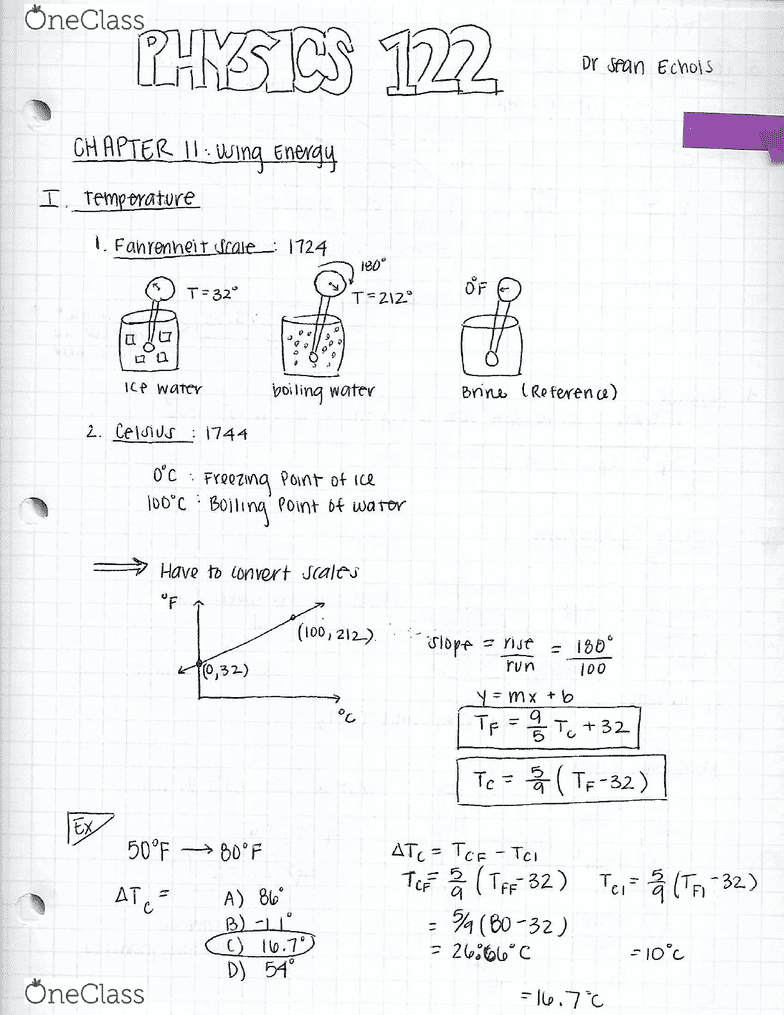 OneClass
PHYSICS 122
Dr Sean Echols
CHAPTER 11: Using Energy
I. Temperature
1. Fahrenheit Scale : 1724
T=32°
180°
T=212°
0°F
ice water
boiling water
Brine (Reference)
2. Celsius : 1744
0°C : Freezing Point of ice
100°C : Boiling Point of water
⟹ Have to convert scales
°F
(100, 212)
(0,32)
°C
slope = rise/run = 180°/100
y = mx + b
TF = 9/5 Tc + 32
Tc = 5/9 (TF - 32)
Ex
50°F → 80°F
ΔTc =
A) 86°
B) -1.1°
C) 16.7°
D) 54°
ΔTc = TCF - TCI
TCF = 5/9 (TFF - 32)
TCI = 5/9 (TFI - 32)
= 5/9 (80 - 32)
= 26.66°C
= 10°C
= 16.7°C
OneClass